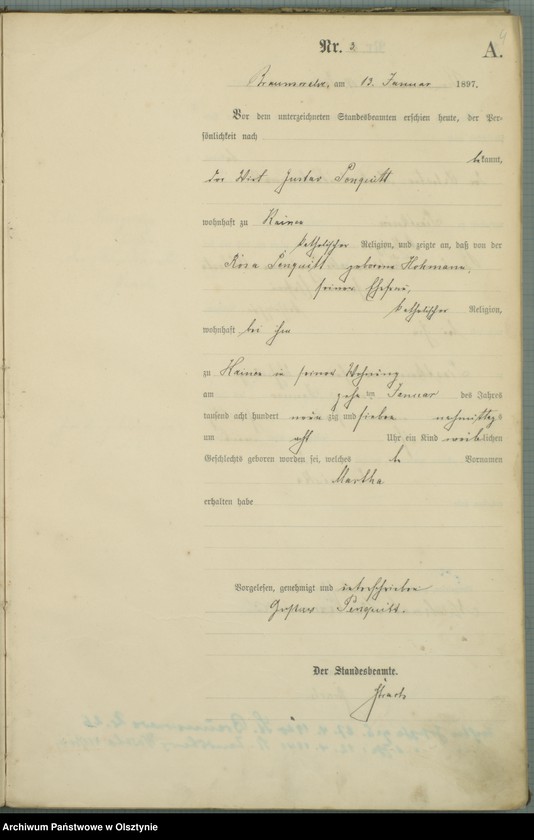 Nr. 3
A.
Braunswalde, am 13. Januar 1897.
Vor dem unterzeichneten Standesbeamten erschien heute, der Per-
sönlichkeit nach
bekannt,
der Wirt Gustav Penquitt
wohnhaft zu
katholischer Religion, und zeigte an, daß von der
Rosa Penquitt geborene Hohmann,
seiner Ehefrau,
katholischer Religion,
wohnhaft bei ihm
zu in seiner Wohnung
am zehn ten Januar des Jahres
tausend acht hundert neun zig und sieben nachmittags
um acht Uhr ein Kind weiblichen
Geschlechts geboren worden sei, welches Vornamen
Martha
erhalten habe
Vorgelesen, genehmigt und unterschrieben
Gustav Penquitt.
Der Standesbeamte.
Archiwum Państwowe w Olsztynie